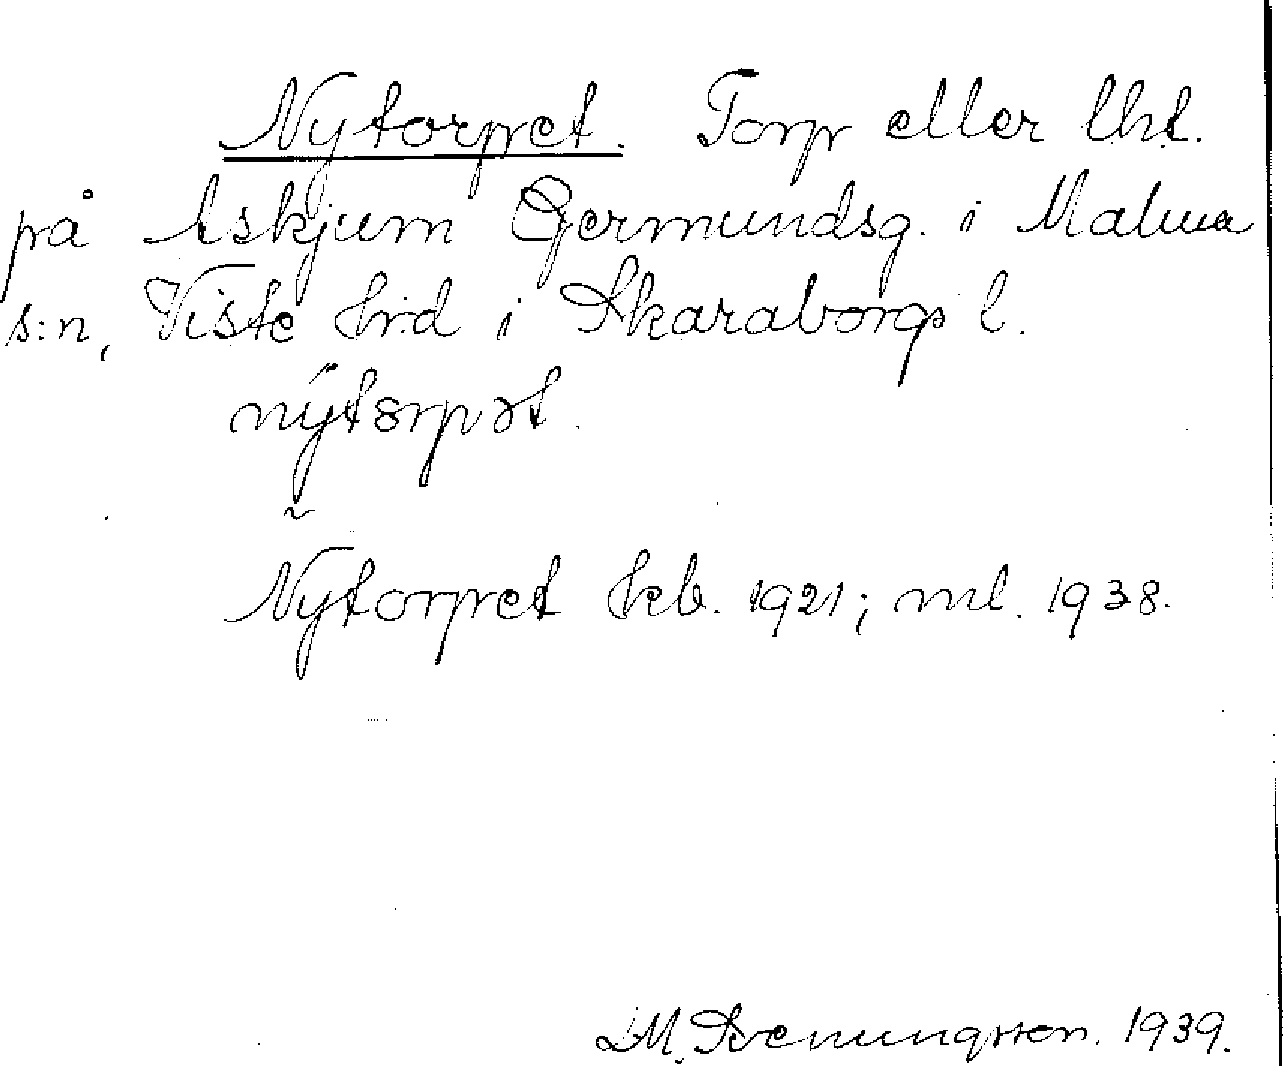 Nytorpet. Torp eller lht.
på Askjum Germundsg. i Malma
s:n, Viste hrd i Skaraborgs l.
nýtørpət.
Nytorpet hkb. 1921; ml. 1938.
Svenungsson. 1939.